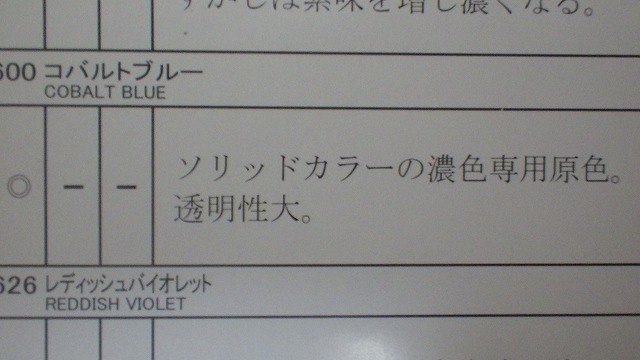 すかしは紫味を増し濃くなる。
600 コバルトブルー
COBALT BLUE
◎ − − ソリッドカラーの濃色専用原色。
透明性大。
626 レディッシュバイオレット
REDDISH VIOLET